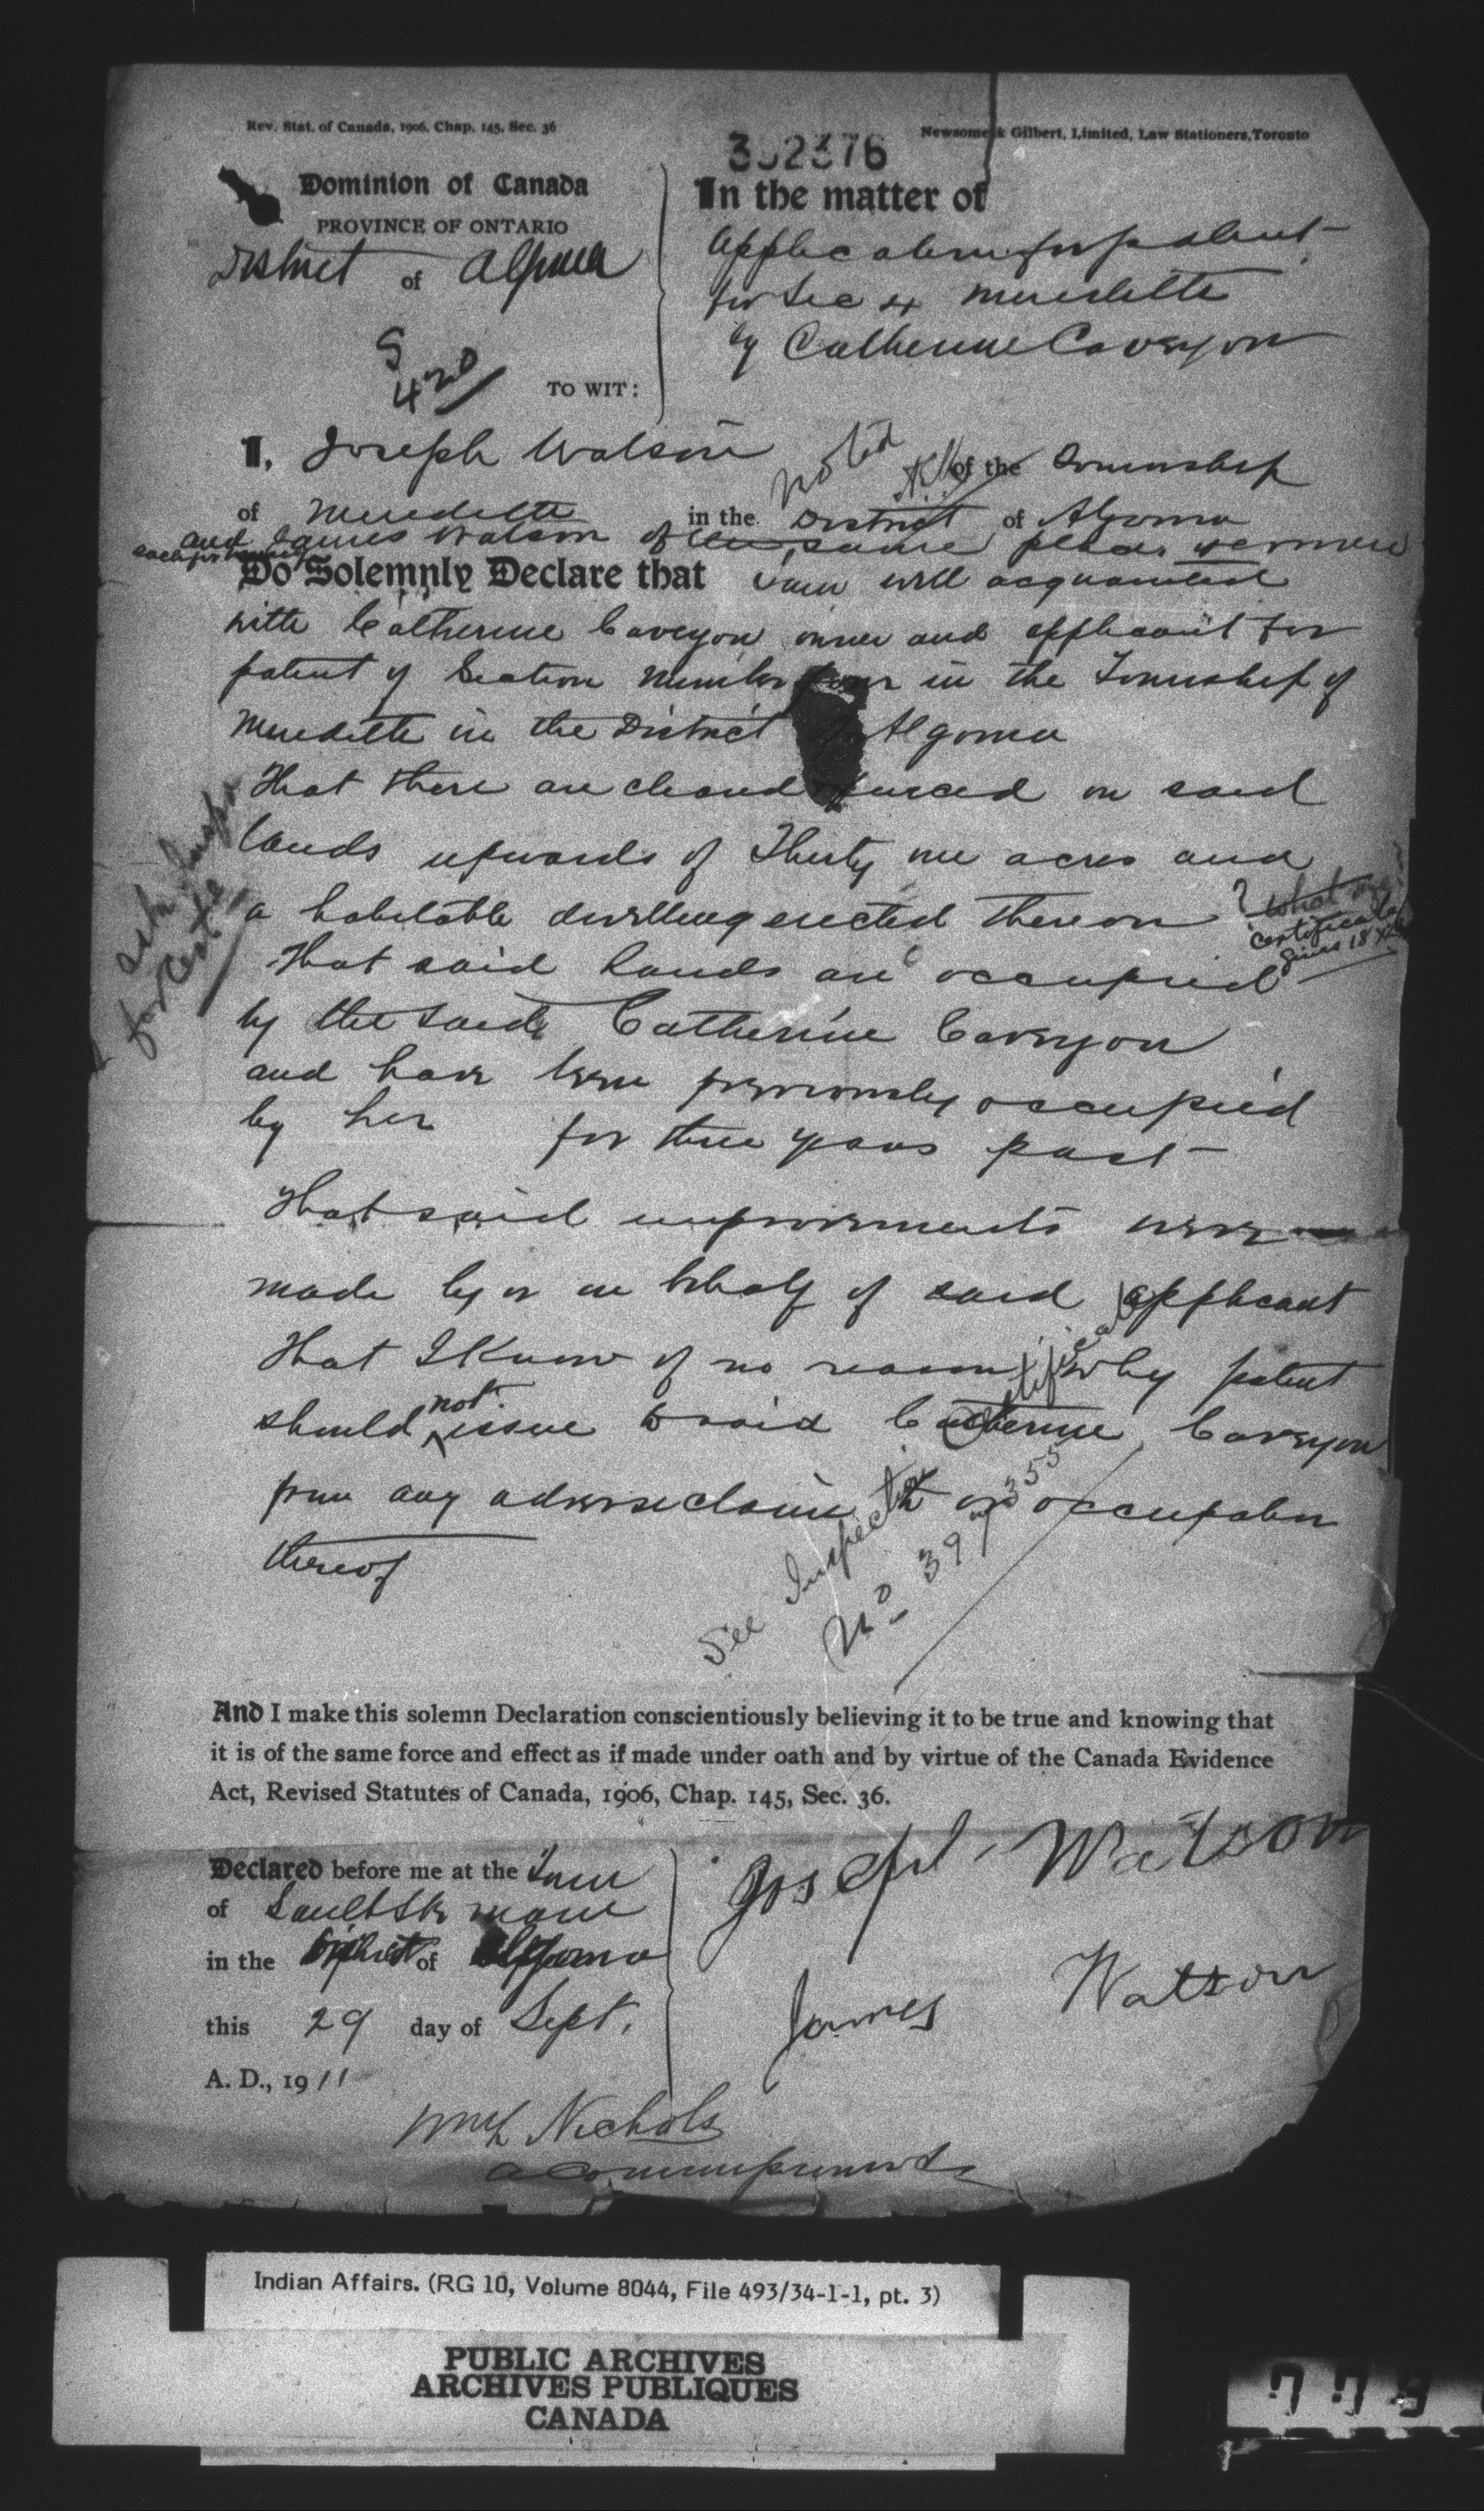 Rev. Stat. of Canada, 1906, Chap. 145, Sec. 36
Newsome & Gilbert, Limited, Law Stationers, Toronto
352376
Dominion of Canada
PROVINCE OF ONTARIO
District of Algoma
TO WIT:
In the matter of
application for patent
for Sec 4 Meredith
by Catherine Caveyon
I, Joseph Watson of the Township
noted
of Meredith in the District of Algoma
and James Watson of same place
Do Solemnly Declare that I am well acquainted
with Catherine Caveyon owner and applicant for
patent of Section number four in the Township of
Meredith in the District of Algoma
That there are cleared & fenced on said
lands upwards of Thirty one acres and
a habitable dwelling erected thereon
? What
certificate
gives 18
ask Insp
for Cert
That said lands are occupied
by the said Catherine Caveyon
and have been previously occupied
by her for three years past
That said improvements were
made by or on behalf of said applicant
That I know of no reason why patent
should not issue to said Catherine Caveyon
from any adverse claim to or occupation
thereof
See Inspector certificate
No 397355
And I make this solemn Declaration conscientiously believing it to be true and knowing that
it is of the same force and effect as if made under oath and by virtue of the Canada Evidence
Act, Revised Statutes of Canada, 1906, Chap. 145, Sec. 36.
Declared before me at the Town
of Sault Ste Marie
in the District of Algoma
this 29 day of Sept.
A. D., 1911
Joseph Watson
James Watson
Nichols
Indian Affairs. (RG 10, Volume 8044, File 493/34-1-1, pt. 3)
PUBLIC ARCHIVES
ARCHIVES PUBLIQUES
CANADA